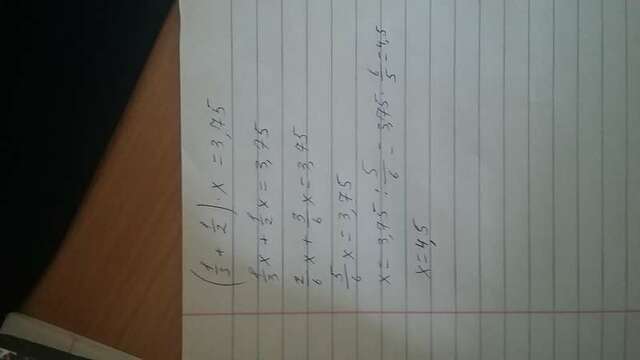 (1/3 + 1/2) · x = 3,75
1/3 x + 1/2 x = 3,75
2/6 x + 3/6 x = 3,75
5/6 x = 3,75
x = 3,75 : 5/6 = 3,75 · 6/5 = 4,5
x = 4,5